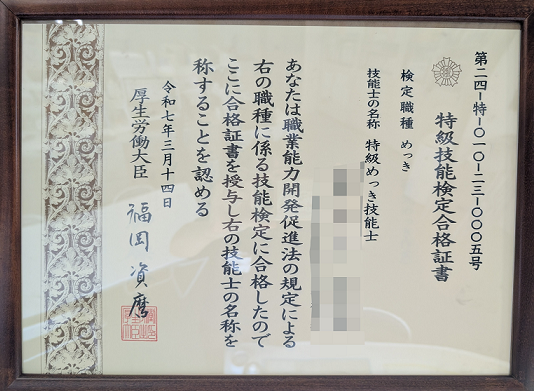 第二四-特-〇一〇-二三-〇〇〇五号
特級技能検定合格証書
検定職種 めっき
技能士の名称 特級めっき技能士
あなたは職業能力開発促進法の規定による
右の職種に係る技能検定に合格したので
ここに合格証書を授与し右の技能士の名称を
称することを認める
令和七年三月十四日
厚生労働大臣 福岡資麿